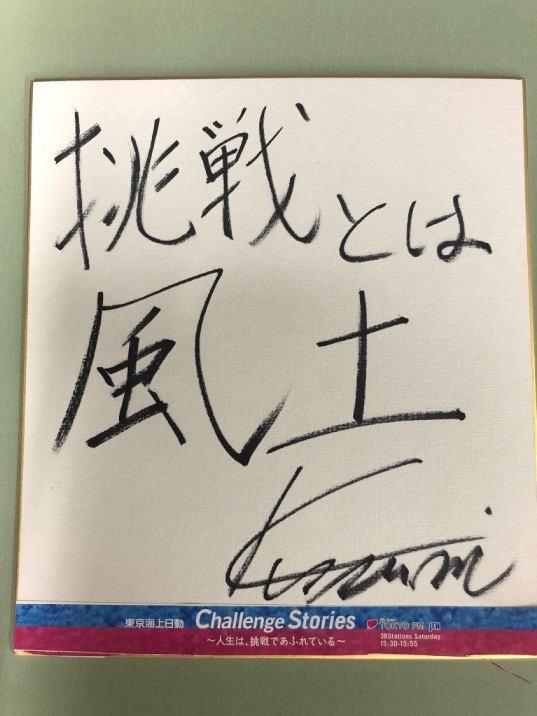 挑戦とは
風土
東京海上日動 Challenge Stories
〜人生は、挑戦であふれている〜
TOKYO FM JFN
38Stations Saturday
15:30-15:55